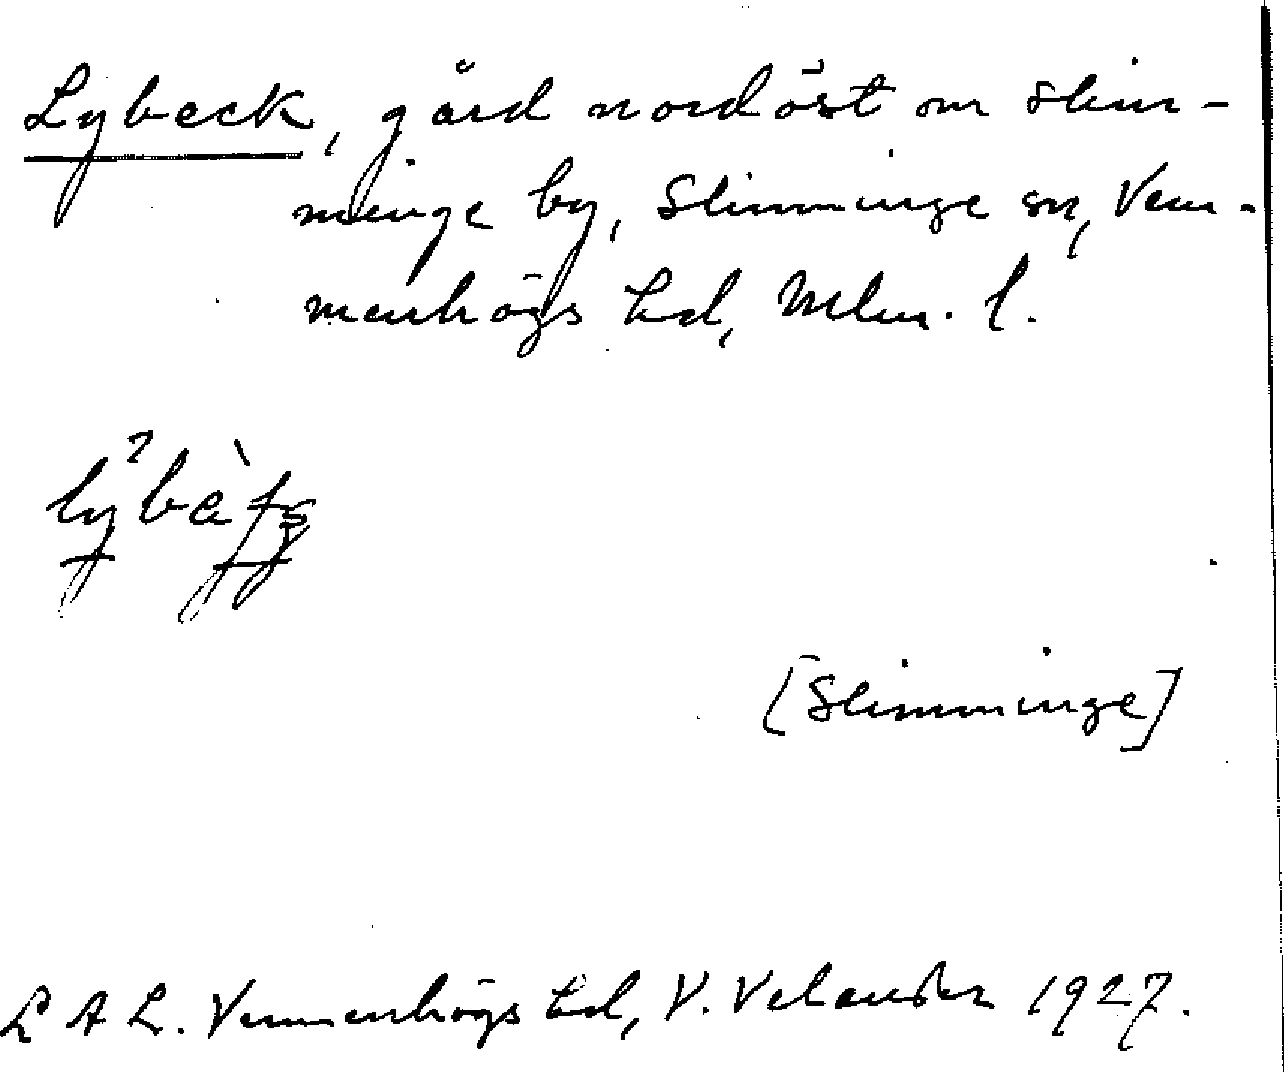 Lybeck, gård nordöst om Slim-
minge by, Slimminge sn, Vem-
menhögs hd, Mlm. l.
[Slimminge]
L A L. Vemmenhögs hd, V. Velander 1927.